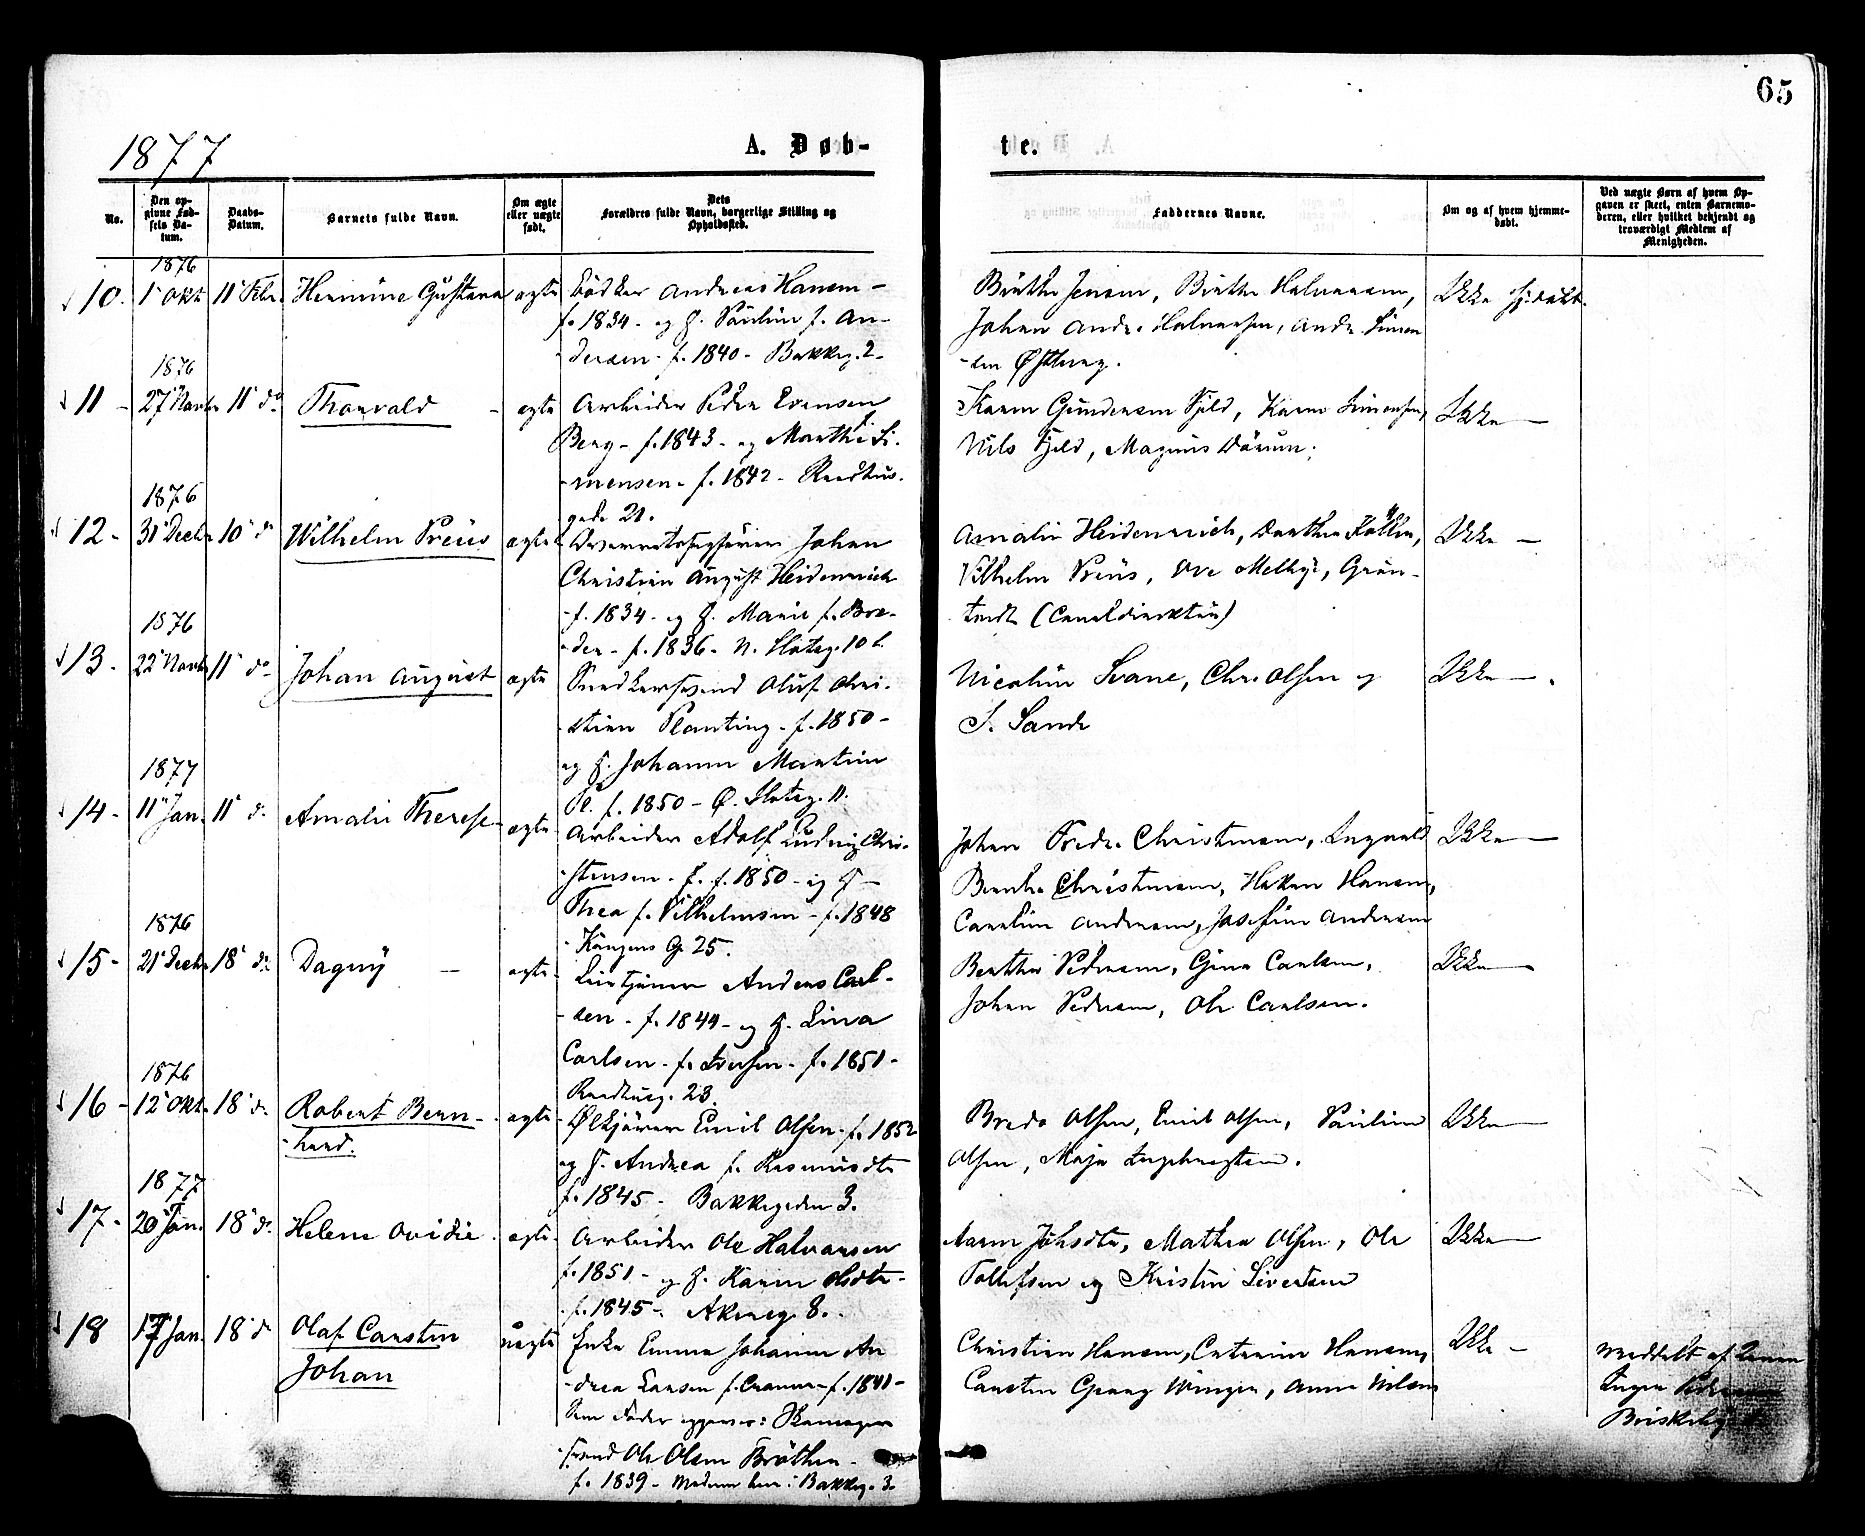 65
1877
A. Døb-
te.
No.
Den op-
givne Fød-
sels Da-
tum.
Daabs-
Datum.
Barnets fulde Navn.
Om ægte
eller uægte
født.
Dets
Forældres fulde Navn, borgerlige Stilling og
Opholdssted.
Faddernes Navne.
Om og af hvem hjemme-
døbt.
Ved uægte Børn af hvem Op-
gaven er skeet, enten Barnemo-
deren, eller hvilket bekjendt og
troværdigt Medlem af
Menigheden.
1876
10. 1 Okt 11 Febr. Hermine Gustava ægte
Bødker Andreas Hansen -
f. 1834 - og H. Pauline f. An-
dersen - f. 1840 - Bakkeg. 2 -
Birthe Jensen, Birthe Halvorsen,
Johan Andr. Halvorsen, Andr. Simon
-sen Østberg.
Ikke hjdøbt.
1876
11 - 27 Novbr 11 do Thorvald - ægte
Arbeider Peder Evensen
Berg - f. 1843 - og Marthe Si-
-monsen - f. 1842 - Raadhus-
gade 21.
Karen Gundersen Fjeld, Karen Simonsen,
Nils Fjeld, Magnus
Ikke -
1876
12 - 31 Decbr 10 do Wilhelm Preus ægte
Overretssagfører Johan
Christian August Heidenreich
- f. 1834 - og H. Marie f. Bre-
-der - f. 1836 - N. Slotsg. 10 b
Amalie Heidenreich, Dorthea
Vilhelm Preus, Ove Grøn-
(Canaldirektør)
Ikke -
1876
13 - 22 Novbr 11 do Johan August ægte
Snedkersvend Oluf Chri-
-stian Planting - f. 1850 -
og H. Johanne Martine
Pl. f. 1850 - Ø. Slotsg. 11.
Nicoline Svane, Chr. Olsen og
S. Sande
Ikke -
1877
14 - 11 Jan. 11 do Amalie Therese ægte
Arbeider Adolf Ludvig Chri-
-stensen - f. 1850 - og H -
Thea f. Vilhelmsen - f. 1848
Kongens G. 25.
Johan Fredr. Christensen, Ingvald
Christensen, Hakon Hansen,
Caroline Andersen, Josefine Andersen
Ikke -
1876
15 - 21 Decbr 18 do Dagny - ægte
Anders Carl-
-sen - f. 1844 - og H. Lina
Carlsen - f. Iversen - f. 1851 -
Raadhusg. 23.
Berthe Pedersen, Gina Carlsen,
Johan Pedersen, Ole Carlsen.
Ikke -
1876
16 - 12 Okt. 18 do Robert Bern-
-hard. ægte
Ølkjører Emil Olsen - f. 1852
og H. Andrea f. Rasmusdtr
f. 1845 - Bakkegaden 3.
Breda Olsen, Emil Olsen, Pauline
Olsen, Maja Ingebregtsen.
Ikke -
1877
17 - 20 Jan. 18 do Helene Ovidie - ægte
Arbeider Ole Halvorsen
f. 1851 - og H. Karen Olsdtr -
- f. 1845 - Akersg. 8.
Karen Johsdtr, Mathea Olsen, Ole
Tollefsen og Kristin Sivertsen
Ikke -
18 Jan. 18 do Olaf Carsten
Johan uægte
Enke Emma Johanne An
-drea Larsen f. Cramer - f. 1841 -
Som Fader opgives: Skomager-
svend Ole Olsen Bråthen -
f. 1839 - Moderen bor: Bakkeg. 3
Christian Hansen, Catrine Hansen,
Carsten Georg Winger, Anne Nilsen
Ikke -
Meddelt af
Inger Pedersen